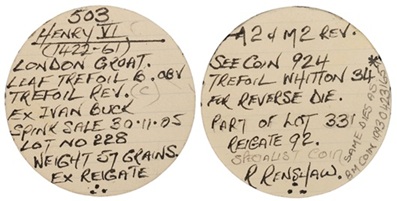 503
HENRY VI.
(1422-61)
LONDON GROAT.
LEAF TREFOIL B. OBV
TREFOIL REV. (C)
EX IVAN BUCK
SPINK SALE 30.11.05
LOT NO 228
WEIGHT 57 GRAINS.
EX REIGATE
A2 & M2 REV.
SEE COIN 924
TREFOIL WHITTON 34
FOR REVERSE DIE.
PART OF LOT 331
REIGATE 92.
SPECIALIST COIN
R RENSHAW.
SAME DIES AS
BM COIN 1930423165 *